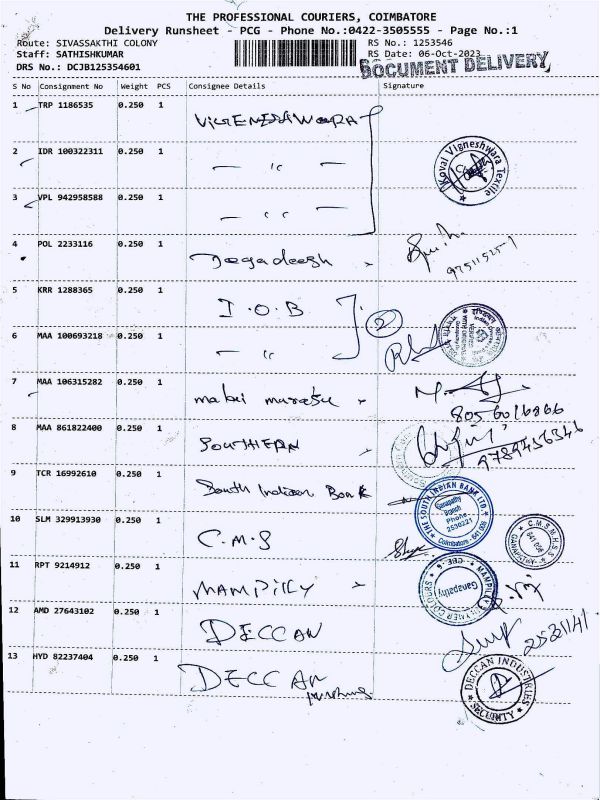 THE PROFESSIONAL COURIERS, COIMBATORE
Delivery Runsheet - PCG - Phone No.:0422-3505555 - Page No.:1
Route: SIVASSAKTHI COLONY
RS No.: 1253546
Staff: SATHISHKUMAR
RS Date: 06-Oct-2023
DRS No.: DCJB125354601
DOCUMENT DELIVERY
S No Consignment No Weight PCS Consignee Details Signature
1 TRP 1186535 0.250 1
2 IDR 100322311 0.250 1 — " —
Kovai Vigneshwara Textile
3 VPL 942958588 0.250 1 — " —
4 POL 2233116 0.250 1 Jegadeesh
5 KRR 1288365 0.250 1 I.O.B
2
6 MAA 100693218 0.250 1 — "
7 MAA 106315282 0.250 1
8056016866
8 MAA 861822400 0.250 1 SOUTHERN
9789456346
9 TCR 16992610 0.250 1 South Indian Bank
THE SOUTH INDIAN BANK LTD
Ganapathy Branch
Phone
2530221
Coimbatore - 641 006
10 SLM 329913930 0.250 1 C.M.S
C.M.S.M.H.S.S
11 RPT 9214912 0.250 1 MAMPILLY
Ganapathy
12 AMD 27643102 0.250 1 DECCAN
13 HYD 82237404 0.250 1 DECCAN
DECCAN INDUSTRIES
SECURITY